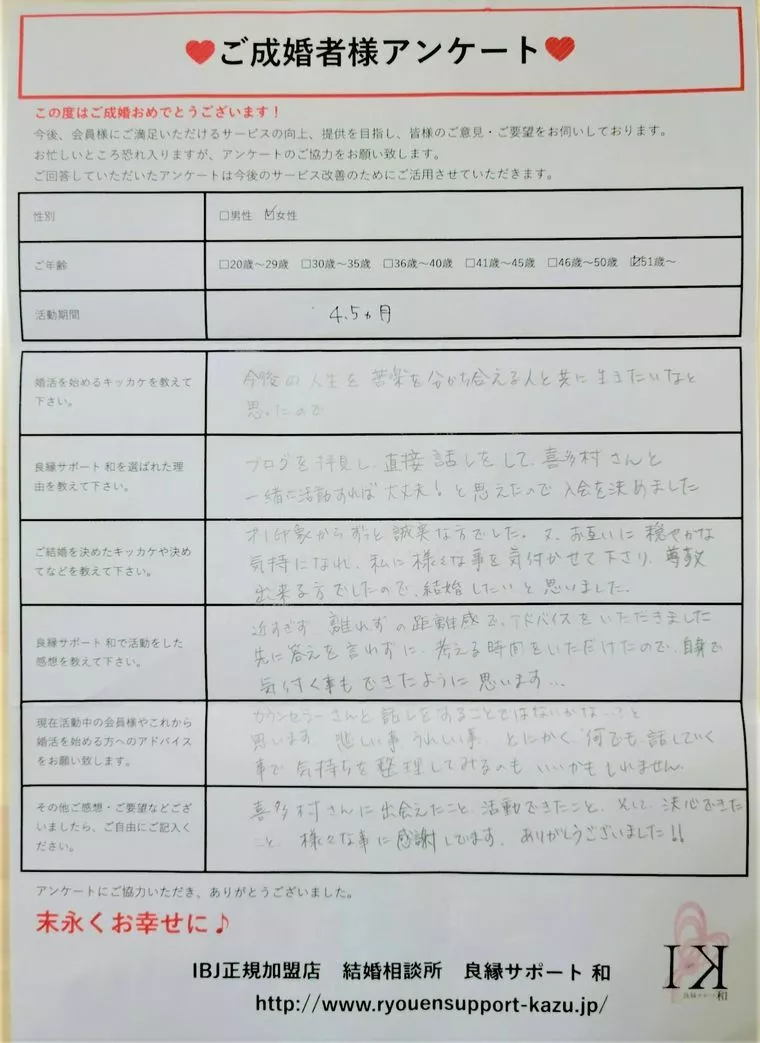 ♥ご成婚者様アンケート♥
この度はご成婚おめでとうございます！
今後、会員様にご満足いただけるサービスの向上、提供を目指し、皆様のご意見・ご要望をお伺いしております。
お忙しいところ恐れ入りますが、アンケートのご協力をお願い致します。
ご回答していただいたアンケートは今後のサービス改善のためにご活用させていただきます。
性別
□男性 ☑女性
ご年齢
□20歳～29歳 □30歳～35歳 □36歳～40歳 □41歳～45歳 □46歳～50歳 ☑51歳～
活動期間
4.5ヵ月
婚活を始めるキッカケを教えて
下さい。
今後の人生を苦楽を分かち合える人と共に生きたいなと
思ったので
良縁サポート 和を選ばれた理
由を教えて下さい。
ブログを拝見し、直接話しをして、喜多村さんと
一緒に活動すれば大丈夫！と思えたので入会を決めました
ご結婚を決めたキッカケや決め
てなどを教えて下さい。
才1印象からずっと誠実な方でした。又、お互いに穏やかな
気持になれ、私に様々な事を気付かせて下さり、尊敬
出来る方でしたので、結婚したいと思いました。
良縁サポート 和で活動をした
感想を教えて下さい。
近すぎず、離れずの距離感で、アドバイスをいただきました
先に答えを言わずに、考える時間をいただけたので、自身で
気付く事もできたように思います…
現在活動中の会員様やこれから
婚活を始める方へのアドバイス
をお願い致します。
カウンセラーさんと話しをすることではないかな…?と
思います 悲しい事 うれしい事 とにかく 何でも話していく
事で 気持ちを整理してみるのも いいかもしれません
その他ご感想・ご要望などござ
いましたら、ご自由にご記入く
ださい。
喜多村さんに出会えたこと、活動できたこと、そして、決心できた
こと、様々な事に感謝してます、ありがとうございました!!
アンケートにご協力いただき、ありがとうございました。
末永くお幸せに♪
IBJ正規加盟店 結婚相談所 良縁サポート 和
http://www.ryouensupport-kazu.jp/
IK
良縁サポート和